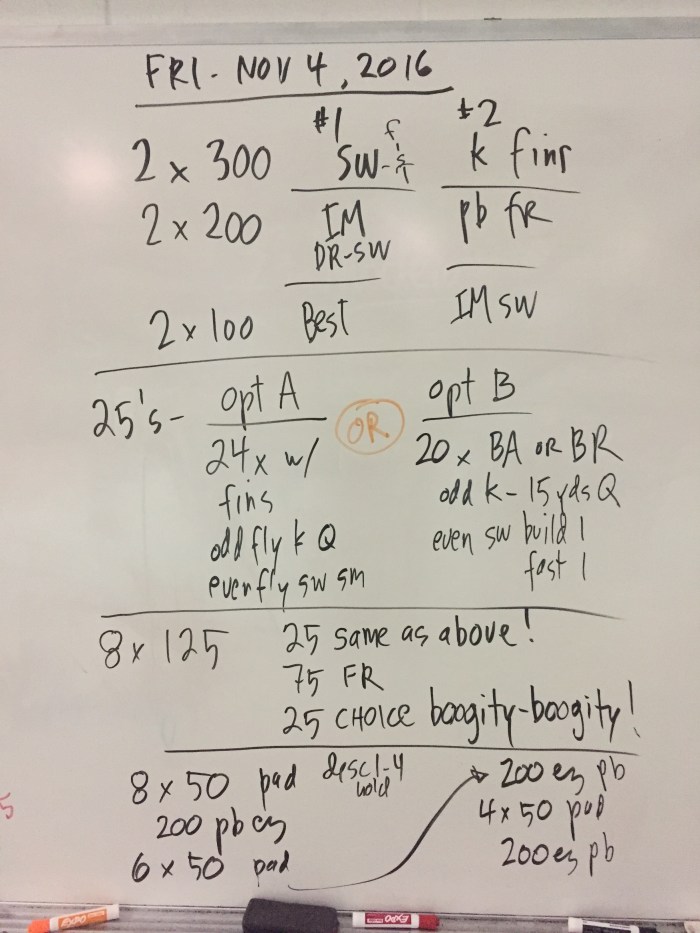 FRI - NOV 4, 2016
#1 #2
2 x 300 SW- k fins
2 x 200 IM pb fR
DR-SW
2 x 100 Best IM SW
25's - opt A OR opt B
24x w/ 20 x BA OR BR
fins odd k - 15 yds Q
odd fly k Q even sw build 1
even fly sw sm fast 1
8 x 125 25 same as above!
75 FR
25 CHOICE boogity-boogity!
8 x 50 pad desc 1-4
hold
200 pb ez
6 x 50 pad
200 ez pb
4 x 50 pad
200 ez pb
EXPO
EXPO